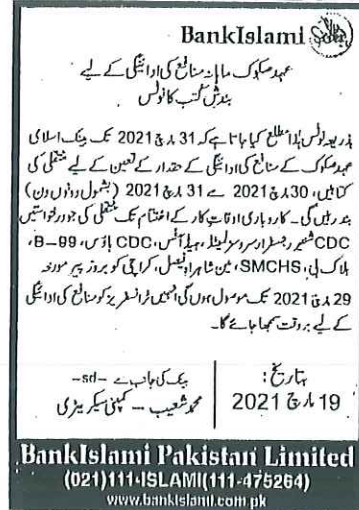 BankIslami
عہد صکوک ماہانہ منافع کی ادائیگی کے لیے
بندش کتب کا نوٹس
بذریعہ نوٹس ہٰذا مطلع کیا جاتا ہے کہ 31 مارچ 2021 تک بینک اسلامی
عہد صکوک کے منافع کی ادائیگی کے حقدار کے تعین کے لیے منتقلی کی
کتابیں، 30 مارچ 2021 سے 31 مارچ 2021 (بشمول دونوں دن)
بند رہیں گی۔ کاروباری اوقات کار کے اختتام تک منتقلی کی جو درخواستیں
CDC شیئر رجسٹرار سروسز لمیٹڈ، ہیڈ آفس، CDC ہاؤس، 99-B،
بلاک بی، SMCHS، مین شاہراہ فیصل، کراچی کو بروز پیر مورخہ
29 مارچ 2021 تک موصول ہوں گی انہیں ٹرانسفریز کو منافع کی ادائیگی
کے لیے بروقت سمجھا جائے گا۔
بتاریخ:
19 مارچ 2021
بینک کی جانب سے -sd-
محمد شعیب -- کمپنی سیکریٹری
BankIslami Pakistan Limited
(021)111-ISLAMI(111-475264)
www.bankislami.com.pk